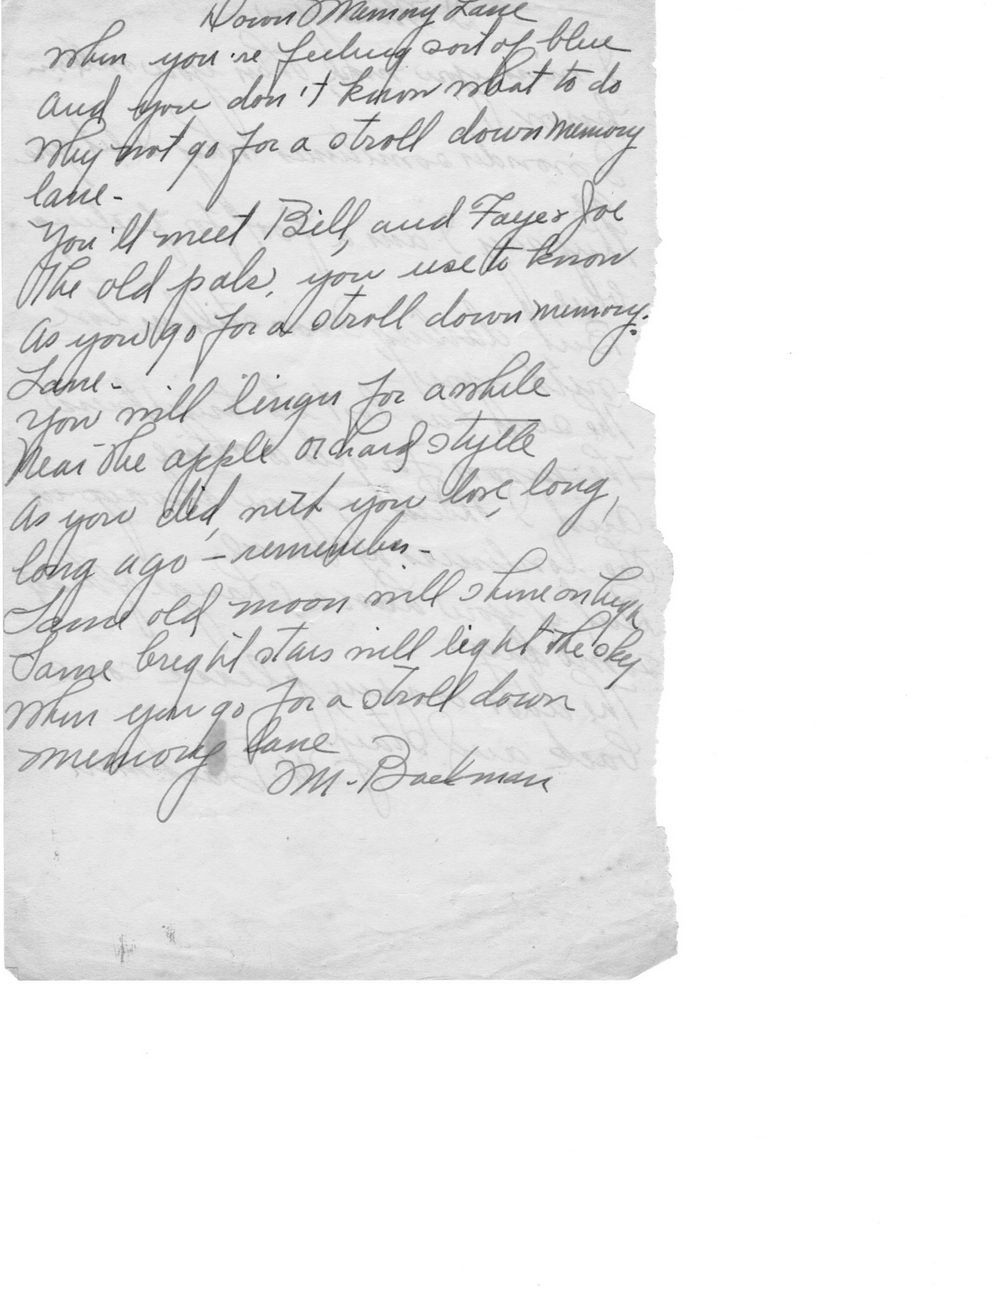 Down Memory Lane
When you're feeling sort of blue
and you don't know what to do
Why not go for a stroll down memory
lane-
You'll meet Bill, and Faye & Joe
The old pals, you use to know
As you go for a stroll down memory.
Lane-
You will linger for awhile
Near the apple orchard stylle
As you did, with you love, long,
long ago - remember-
Same old moon will shine on high
Same bright stars will light the sky
When you go for a stroll down
memory lane
M. Backman